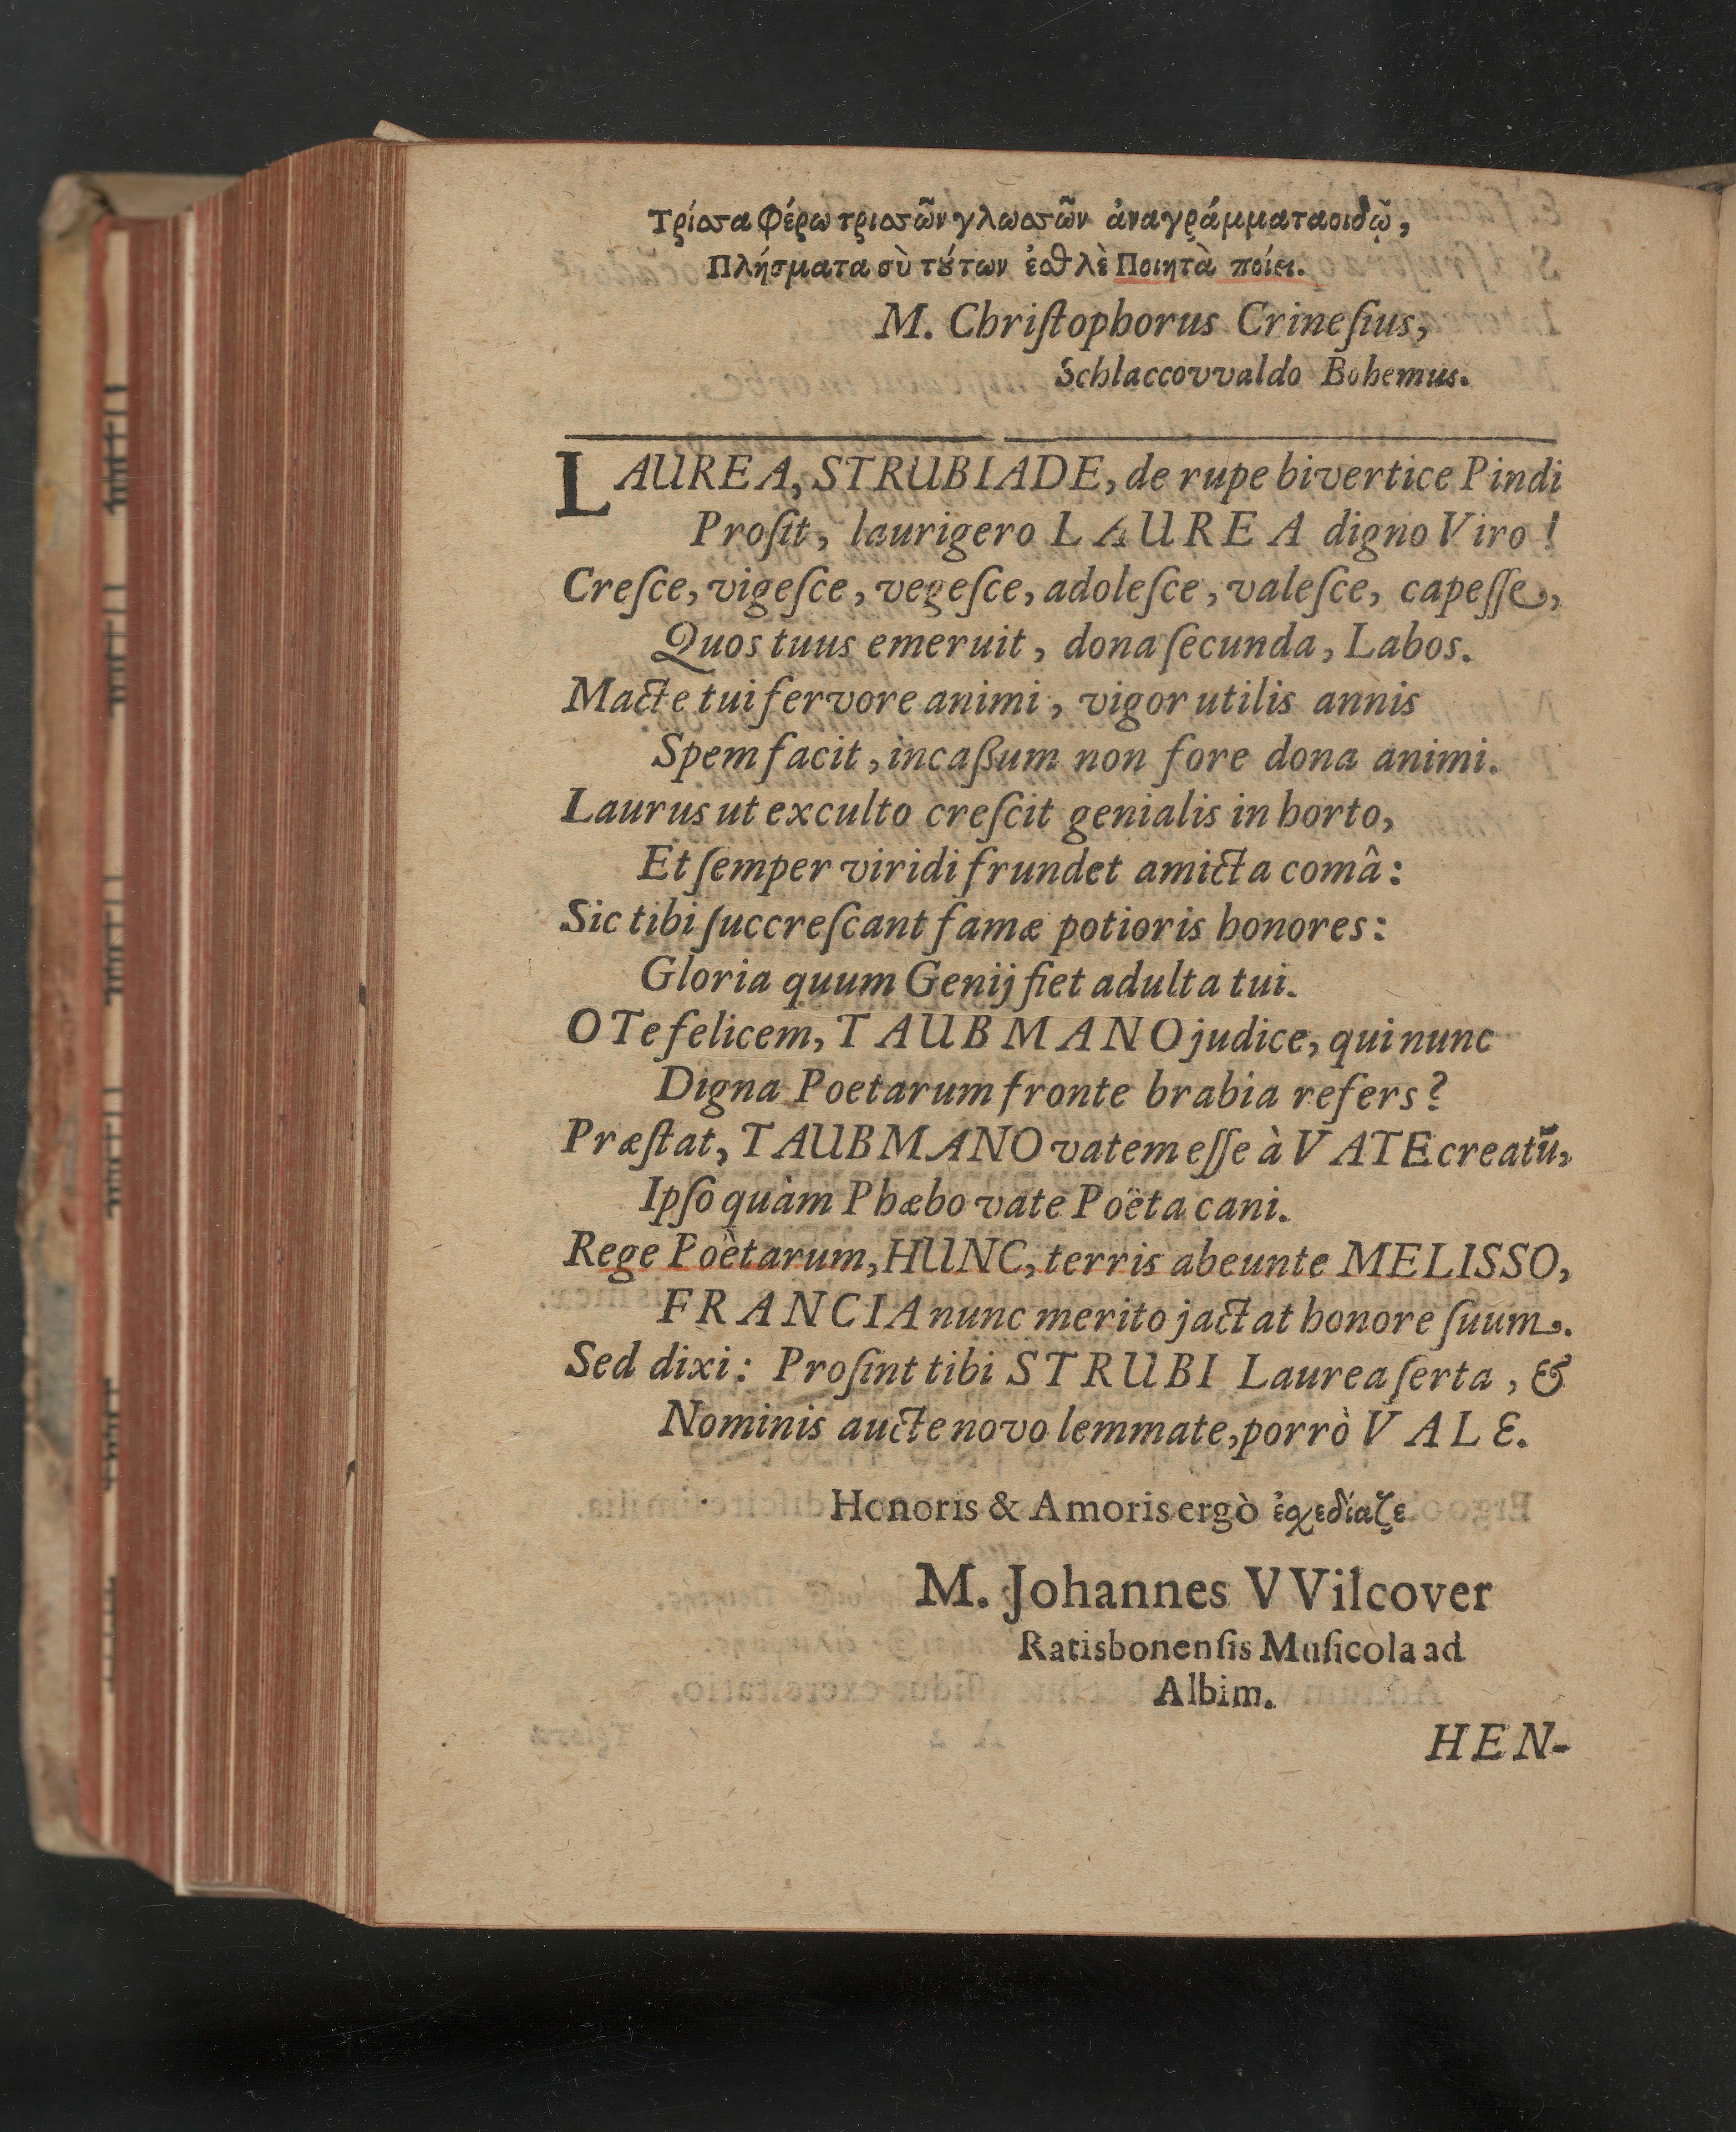 Τρίσσα φέρω τρισσῶν γλωσσῶν ἀναγράμματα σιδῷ,
Πλήσματα σὺ τούτων ἐσθλὲ Ποιητὰ ποίει.
M. Chriſtophorus Crineſius,
Schlaccovvaldo Bohemus.
LAUREA, STRUBIADE, de rupe bivertice Pindi
Proſit, laurigero LAUREA digno Viro!
Creſce, vigeſce, vegeſce, adoleſce, valeſce, capeſſe,
Quos tuus emeruit, dona ſecunda, Labos.
Macte tui fervore animi, vigor utilis annis
Spem facit, incaßum non fore dona animi.
Laurus ut exculto creſcit genialis in horto,
Et ſemper viridi frundet amicta comâ:
Sic tibi ſuccreſcant famæ potioris honores:
Gloria quum Genij fiet adulta tui.
O Te felicem, TAUBMANO judice, qui nunc
Digna Poetarum fronte brabia refers?
Præſtat, TAUBMANO vatem eſſe à VATE creatũ,
Ipſo quàm Phæbo vate Poëta cani.
Rege Poètarum, HUNC, terris abeunte MELISSO,
FRANCIA nunc merito jactat honore ſuum.
Sed dixi: Proſint tibi STRUBI Laurea ſerta, &
Nominis aucte novo lemmate, porrò VALE.
Honoris & Amoris ergò ἐσχεδίαζε
M. Johannes VVilcover
Ratisbonenſis Muſicola ad
Albim.
HEN-